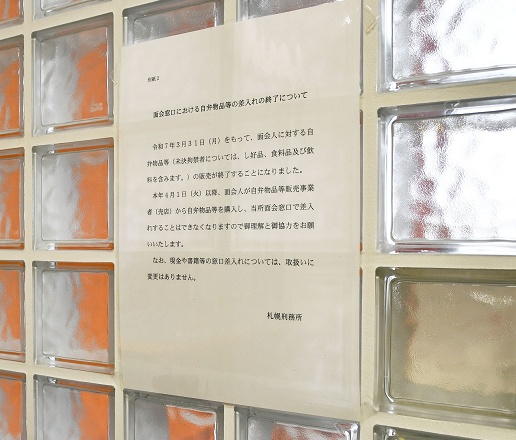 別紙2
面会窓口における自弁物品等の差入れの終了について
令和7年3月31日(月)をもって、面会人に対する自
弁物品等(未決拘禁者については、し好品、食料品及び飲
料を含みます。)の販売が終了することになりました。
本年4月1日(火)以降、面会人が自弁物品等販売事業
者(売店)から自弁物品等を購入し、当所面会窓口で差入
れすることはできなくなりますので御理解と御協力をお願
いいたします。
なお、現金や書籍等の窓口差入れについては、取扱いに
変更はありません。
札幌刑務所